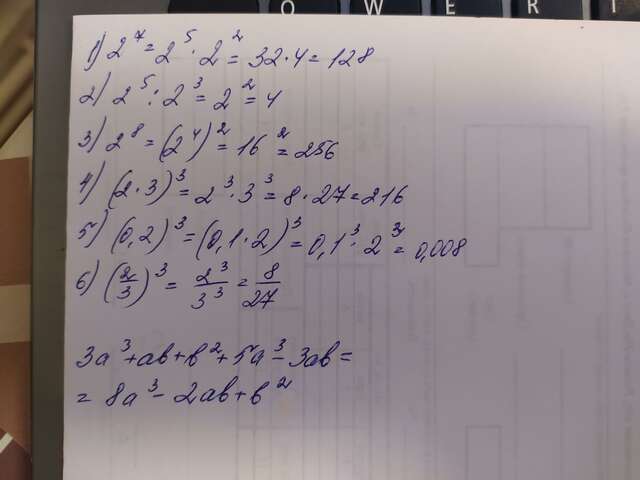 O W E R
1) 2⁷ = 2⁵ · 2² = 32 · 4 = 128
2) 2⁵ : 2³ = 2² = 4
3) 2⁸ = (2⁴)² = 16² = 256
4) (2 · 3)³ = 2³ · 3³ = 8 · 27 = 216
5) (0,2)³ = (0,1 · 2)³ = 0,1³ · 2³ = 0,008
6) (2/3)³ = 2³/3³ = 8/27
3a³ + ab + b² + 5a³ - 3ab =
= 8a³ - 2ab + b²